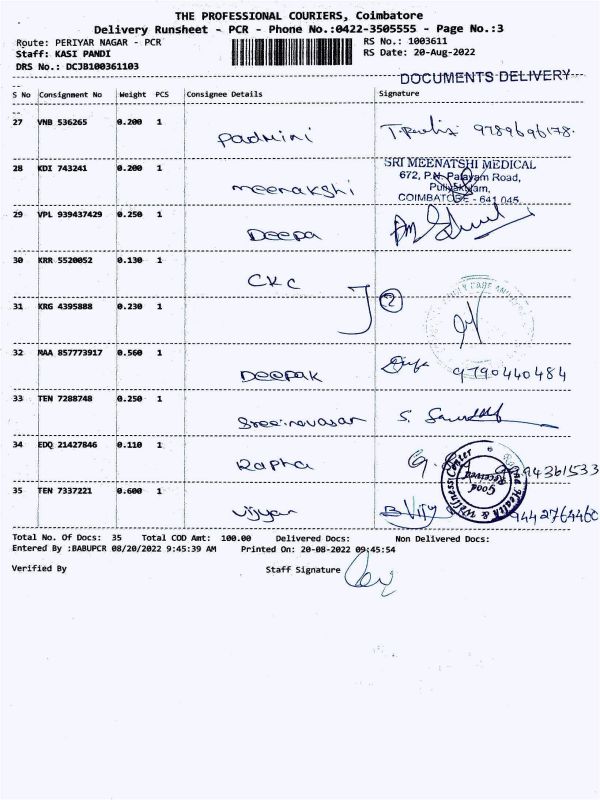 THE PROFESSIONAL COURIERS, Coimbatore
Delivery Runsheet - PCR - Phone No.:0422-3505555 - Page No.:3
Route: PERIYAR NAGAR - PCR
RS No.: 1003611
Staff: KASI PANDI
RS Date: 20-Aug-2022
DRS No.: DCJB100361103
DOCUMENTS DELIVERY
S No Consignment No Weight PCS Consignee Details Signature
27 VNB 536265 0.200 1 Padmini 9789696178.
28 KDI 743241 0.200 1 meenakshi
SRI MEENATSHI MEDICAL
672, P.N. Palayam Road,
Puliyakulam,
COIMBATORE - 641 045.
29 VPL 939437429 0.250 1 Deepa
30 KRR 5520052 0.130 1 CKC
31 KRG 4395888 0.230 1 2
32 MAA 857773917 0.560 1 Deepak 9790440484
33 TEN 7288748 0.250 1 Sreenivasan S.
34 EDQ 21427846 0.110 1 Rapha G. 9394361533
35 TEN 7337221 0.600 1 Vijyan B Vijy 9442764460
Good Received
Health & Wellness Center
Total No. Of Docs: 35 Total COD Amt: 100.00 Delivered Docs: Non Delivered Docs:
Entered By :BABUPCR 08/20/2022 9:45:39 AM Printed On: 20-08-2022 09:45:54
Verified By Staff Signature